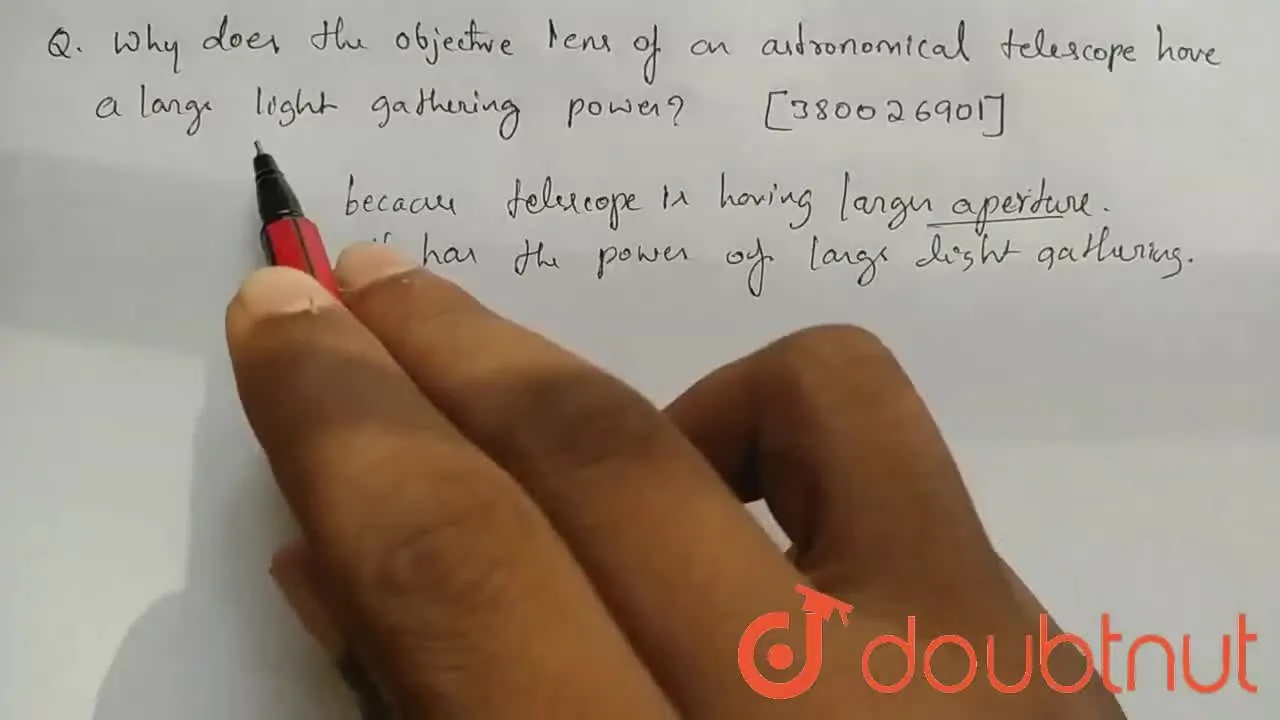 Q. Why does the objective lens of an astronomical telescope have
a large light gathering power? [380026901]
because telescope is having larger aperture.
it has the power of large light gathering.
doubtnut